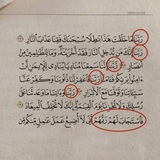 رَبَّنَا مَا خَلَقْتَ هَٰذَا بَٰطِلًا سُبْحَٰنَكَ فَقِنَا عَذَابَ ٱلنَّارِ
رَبَّنَآ إِنَّكَ مَن تُدْخِلِ ٱلنَّارَ فَقَدْ أَخْزَيْتَهُۥ وَمَا لِلظَّٰلِمِينَ مِنْ
أَنصَارٍ رَّبَّنَآ إِنَّنَا سَمِعْنَا مُنَادِيًا يُنَادِى لِلْإِيمَٰنِ أَنْ
ءَامِنُوا۟ بِرَبِّكُمْ فَـَٔامَنَّا رَبَّنَا فَٱغْفِرْ لَنَا ذُنُوبَنَا وَكَفِّرْ عَنَّا
سَيِّـَٔاتِنَا وَتَوَفَّنَا مَعَ ٱلْأَبْرَارِ رَبَّنَا وَءَاتِنَا مَا وَعَدتَّنَا عَلَىٰ
رُسُلِكَ وَلَا تُخْزِنَا يَوْمَ ٱلْقِيَٰمَةِ إِنَّكَ لَا تُخْلِفُ ٱلْمِيعَادَ
فَٱسْتَجَابَ لَهُمْ رَبُّهُمْ أَنِّى لَآ أُضِيعُ عَمَلَ عَٰمِلٍ مِّنكُم مِّن